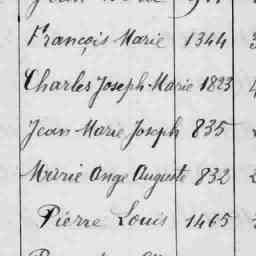 François Marie 1344
Charles Joseph-Marie 1823
Jean Marie Joseph 835
Marie Ange Auguste 832
Pierre Louis 1465